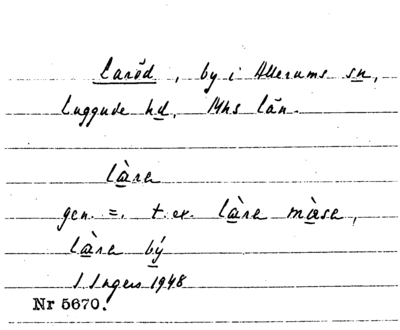 Laröd, by i Allerums sn,
Luggude hd, Mhs län.
là̱ra
gen. =. t. ex. là̱ra mà̱sa,
là̱ra bý̱
I. Ingers 1948
Nr 5670.